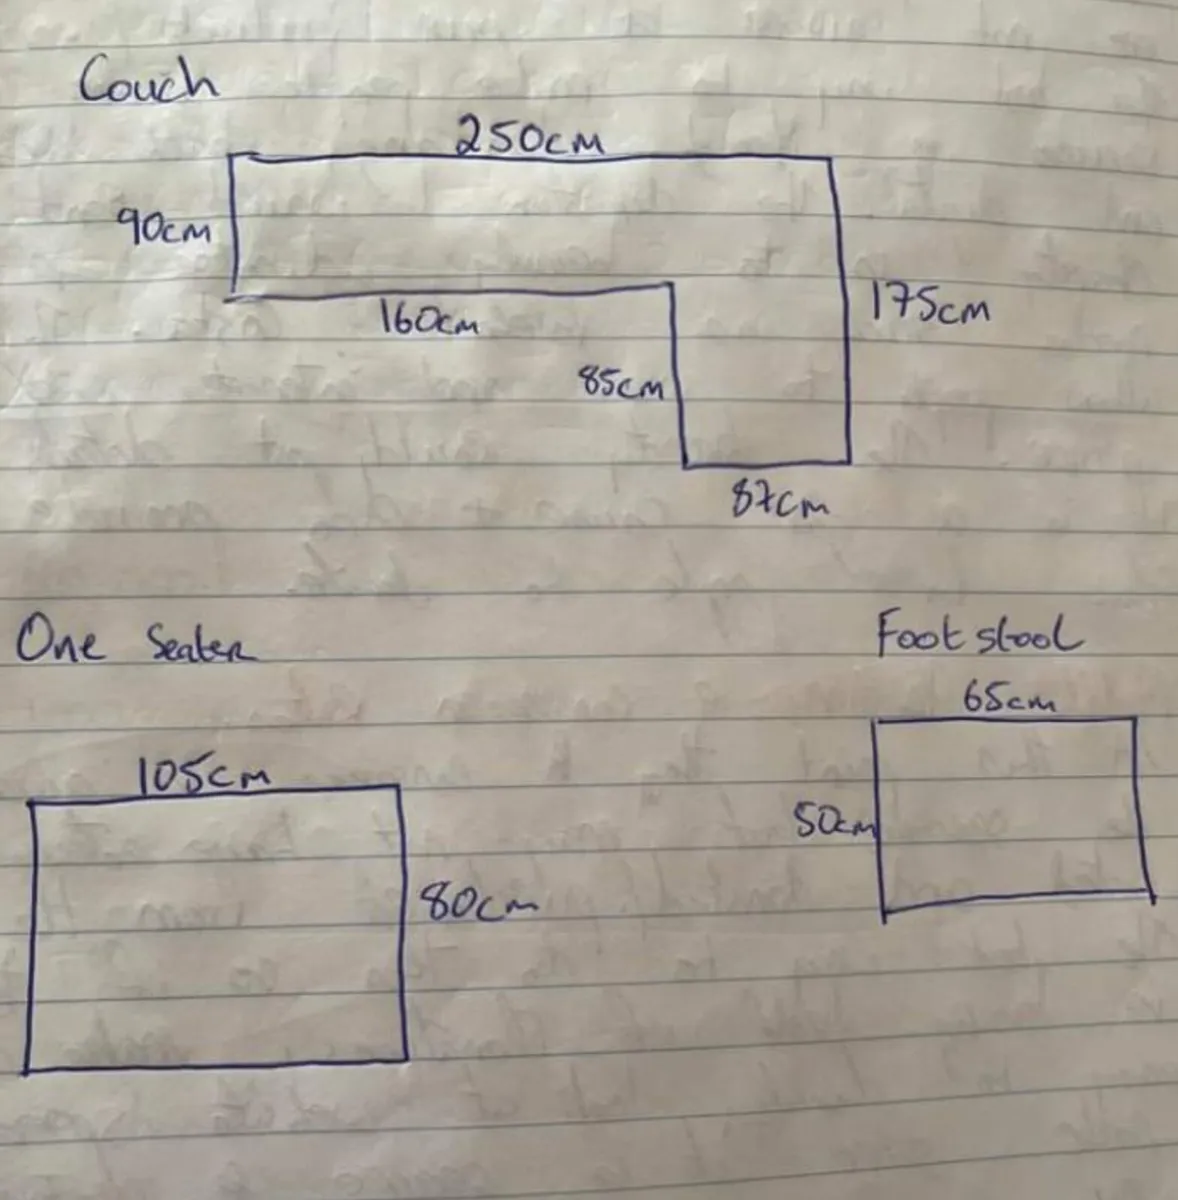 Couch
250cm
90cm
175cm
160cm
85cm
87cm
One Seater
Foot stool
65cm
105cm
50cm
80cm